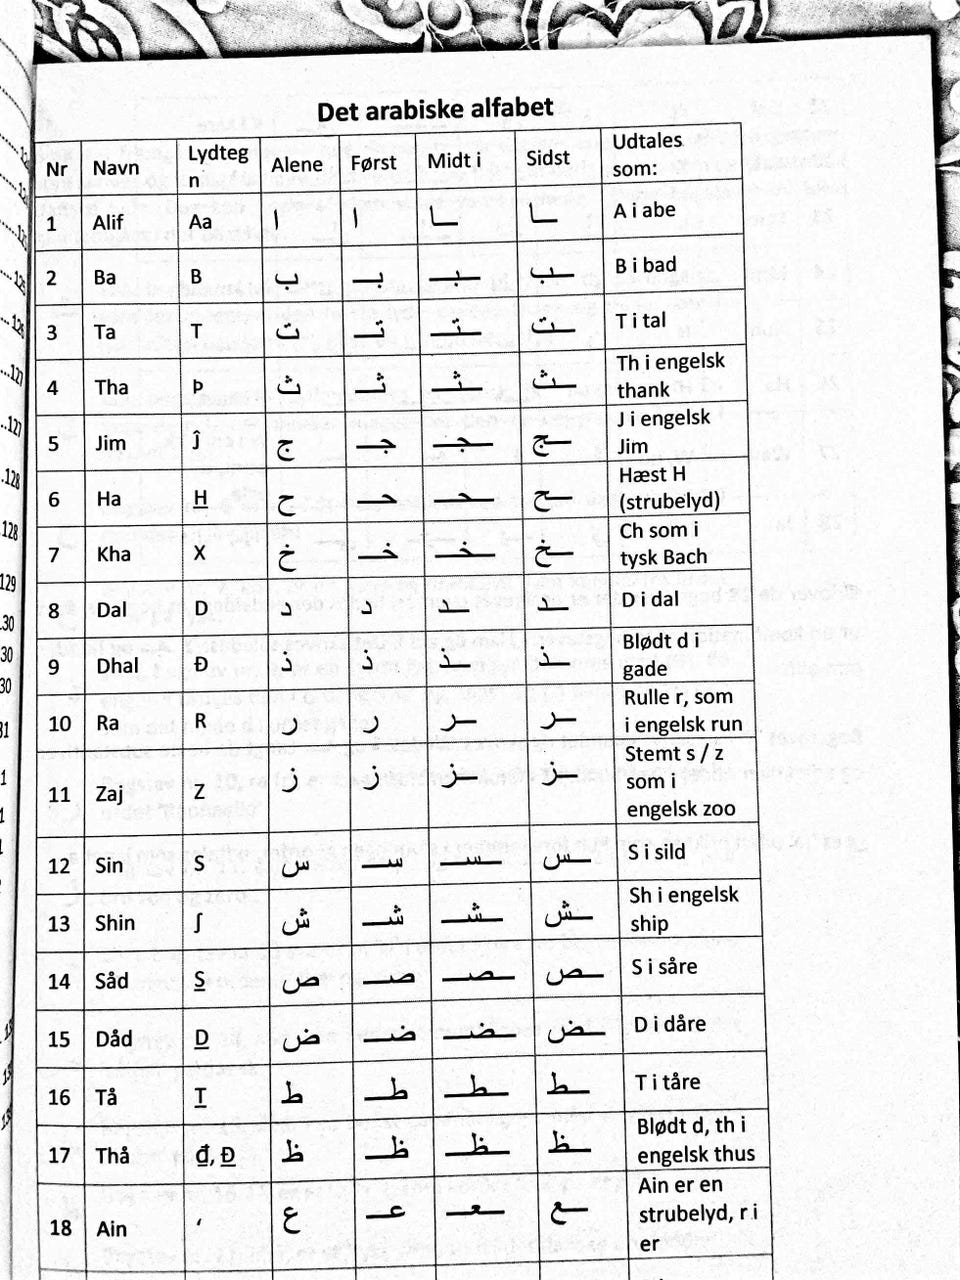 Det arabiske alfabet
Nr Navn Lydtegn Alene Først Midt i Sidst Udtales som:
1 Alif Aa ا ا ـا ـا A i abe
2 Ba B ب بـ ـبـ ـب B i bad
3 Ta T ت تـ ـتـ ـت T i tal
4 Tha Þ ث ثـ ـثـ ـث Th i engelsk thank
5 Jim Ĵ ج جـ ـجـ ـج J i engelsk Jim
6 Ha H ح حـ ـحـ ـح Hæst H (strubelyd)
7 Kha X خ خـ ـخـ ـخ Ch som i tysk Bach
8 Dal D د د ـد ـد D i dal
9 Dhal Đ ذ ذ ـذ ـذ Blødt d i gade
10 Ra R ر ر ـر ـر Rulle r, som i engelsk run
11 Zaj Z ز ز ـز ـز Stemt s / z som i engelsk zoo
12 Sin S س سـ ـسـ ـس S i sild
13 Shin ʃ ش شـ ـشـ ـش Sh i engelsk ship
14 Såd S ص صـ ـصـ ـص S i såre
15 Dåd D ض ضـ ـضـ ـض D i dåre
16 Tå T ط طـ ـطـ ـط T i tåre
17 Thå đ, Đ ظ ظـ ـظـ ـظ Blødt d, th i engelsk thus
18 Ain ‘ ع عـ ـعـ ـع Ain er en strubelyd, r i er